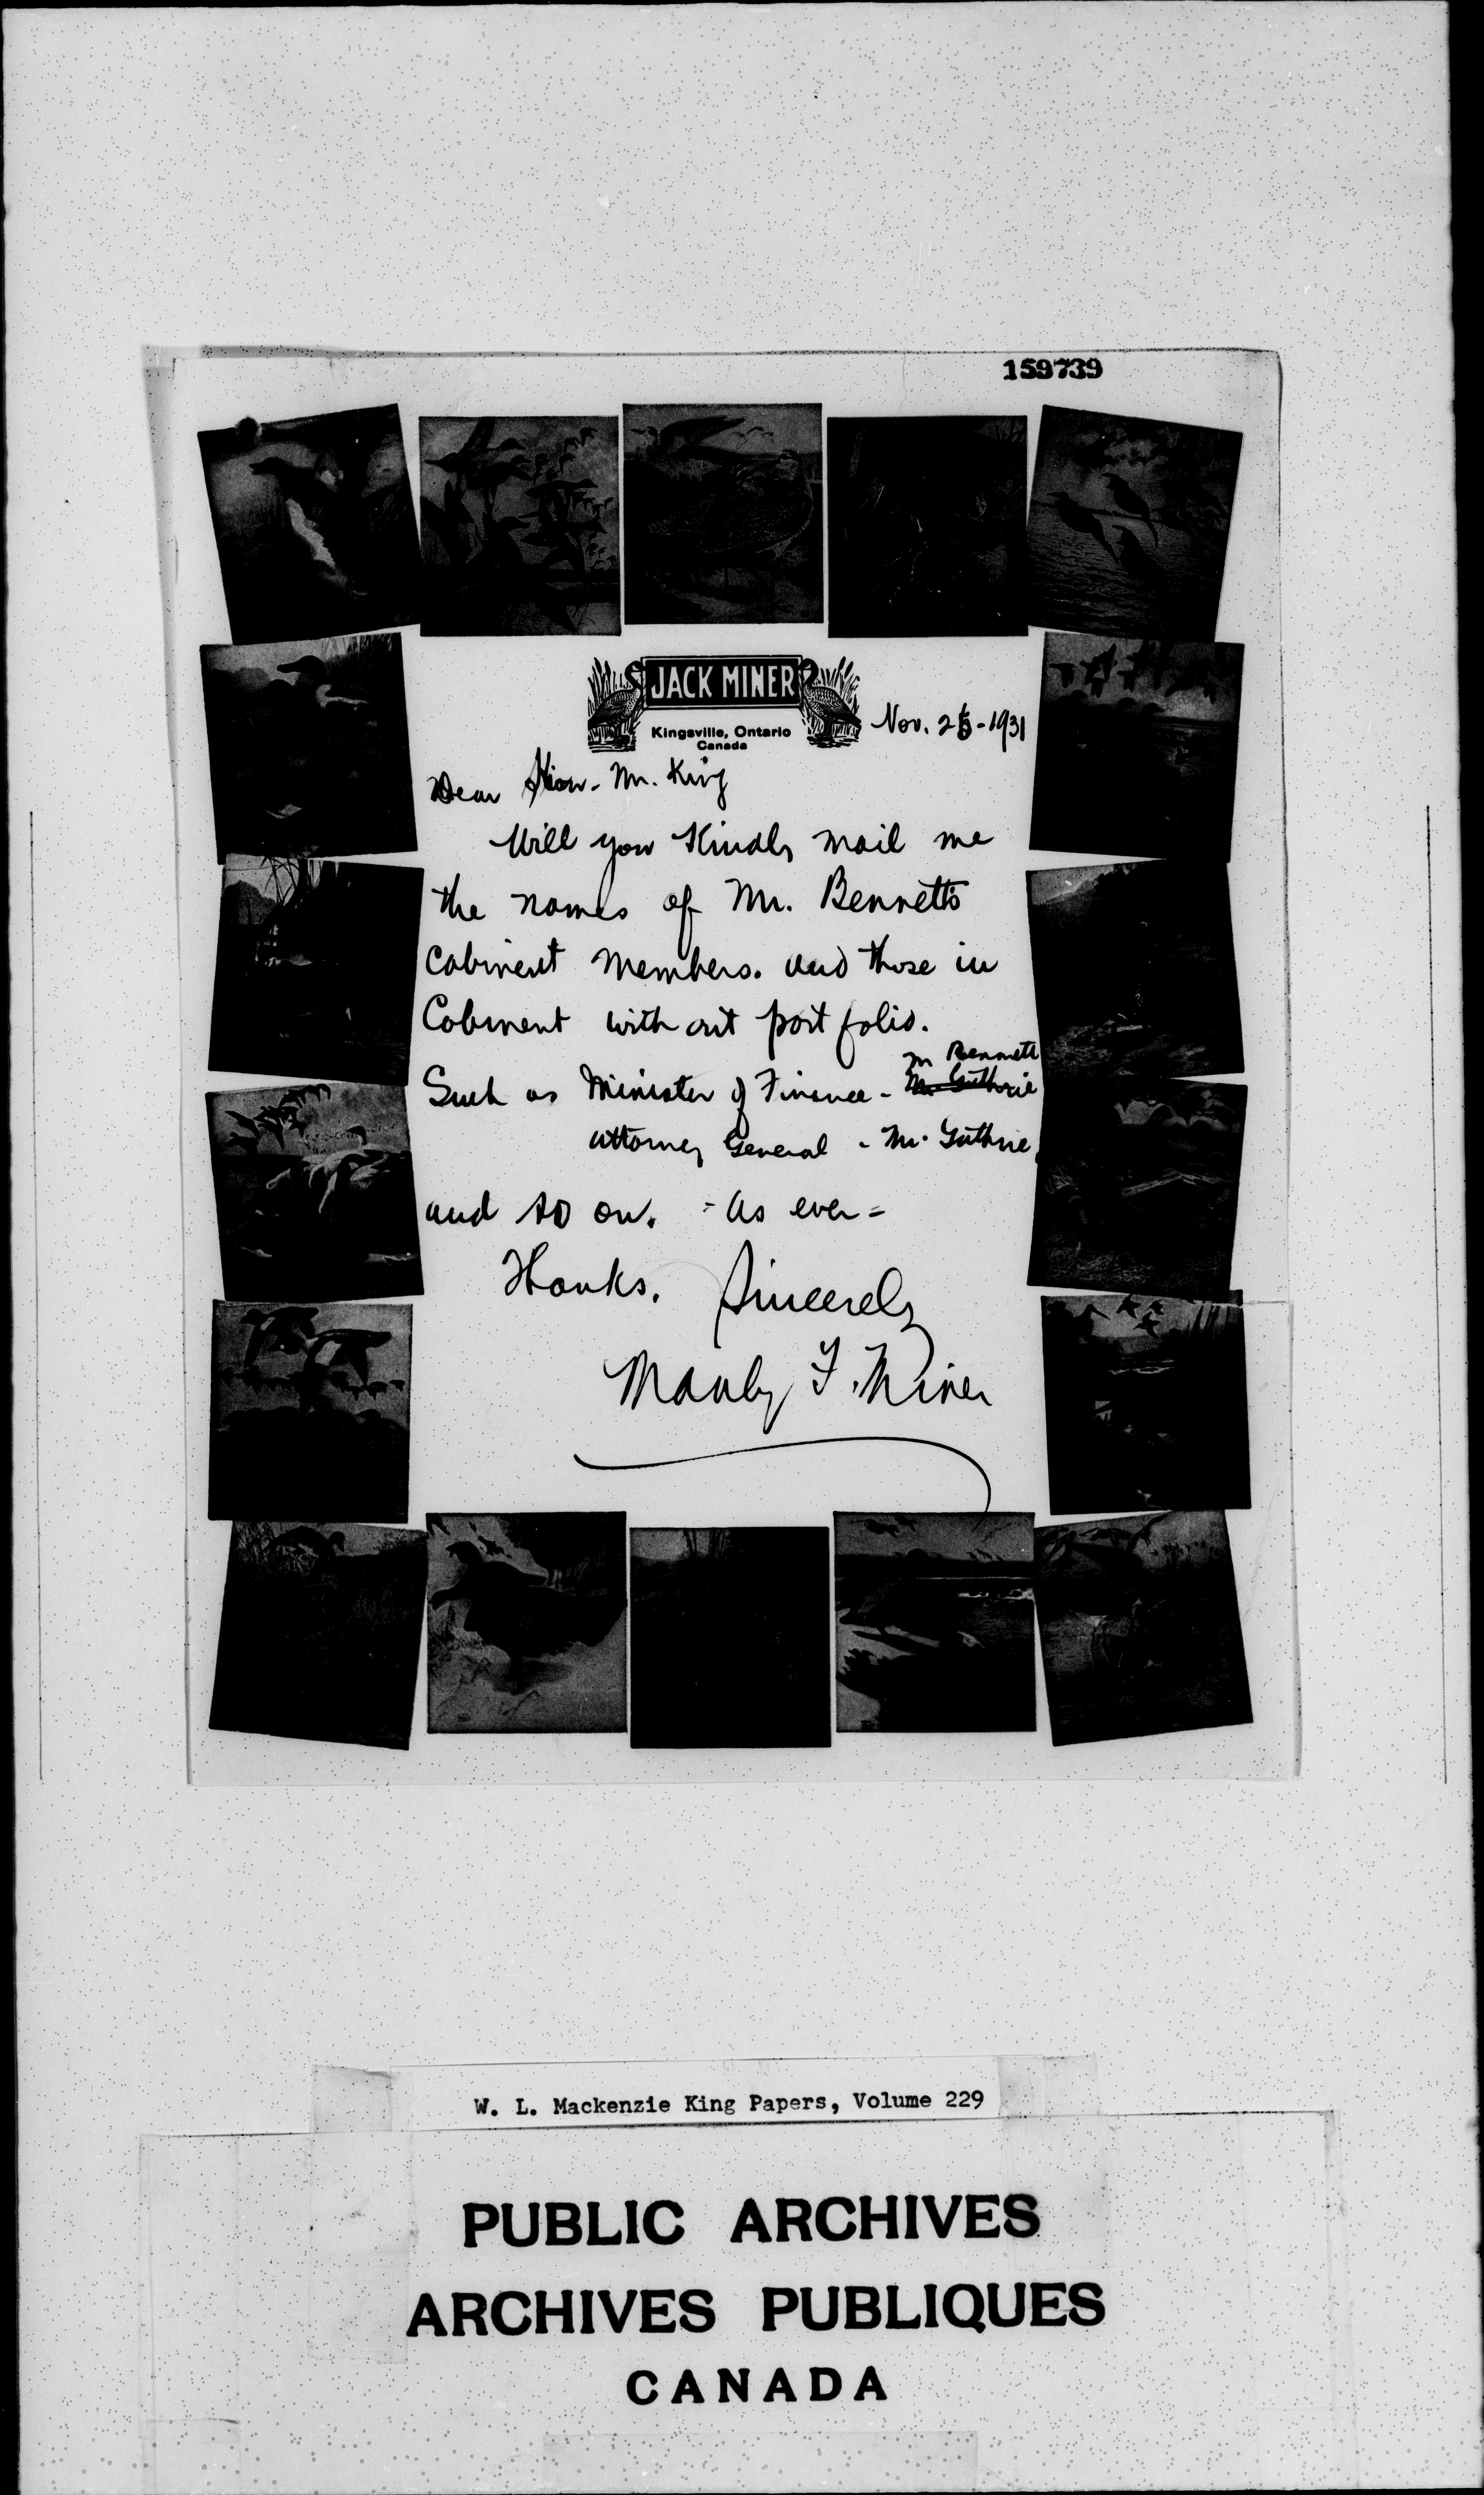 159739
JACK MINER
Kingsville, Ontario
Canada
Nov. 25-1931
Dear Hon. Mr. King
Will you kindly mail me
the names of Mr. Bennetts
Cabinent members. and those in
Cabinent with out port folio.
Mr Bennett
Such as Minister of Finance - Mr. Guthrie
Attorney General - Mr. Guthrie
and so on. - As ever =
Thanks. Sincerely
Manly F. Miner
W. L. Mackenzie King Papers, Volume 229
PUBLIC ARCHIVES
ARCHIVES PUBLIQUES
CANADA